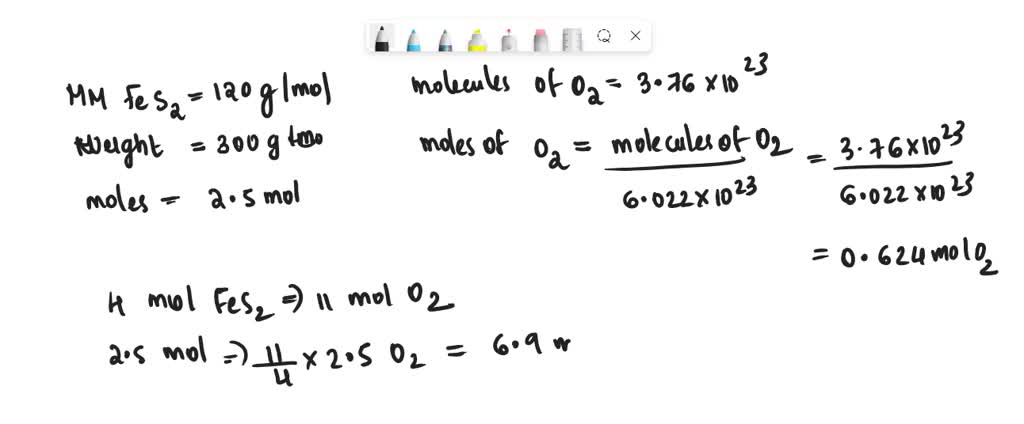 MM FeS2 = 120 g/mol
Weight = 300 g
moles = 2.5 mol
molecules of O2 = 3.76 × 10^23
moles of O2 = molecules of O2 / 6.022 × 10^23 = 3.76 × 10^23 / 6.022 × 10^23
= 0.624 mol O2
4 mol FeS2 => 11 mol O2
2.5 mol => 11/4 × 2.5 O2 = 6.9 m